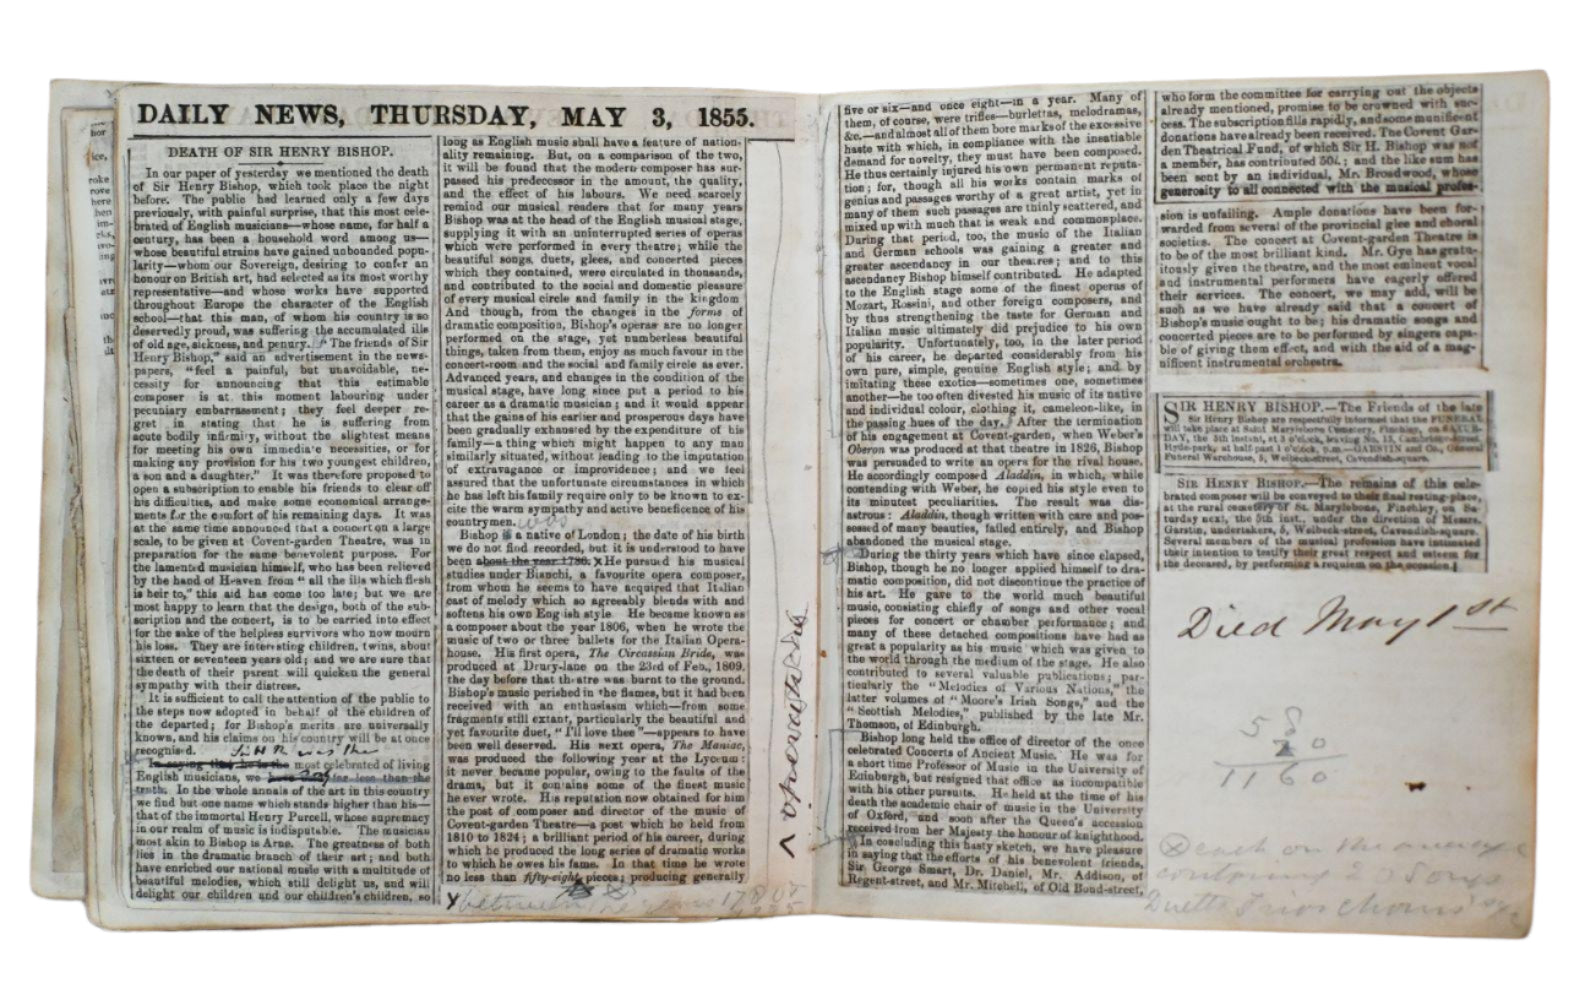 DAILY NEWS, THURSDAY, MAY 3, 1855.
DEATH OF SIR HENRY BISHOP.
In our paper of yesterday we mentioned the death
of Sir Henry Bishop, which took place the night
before. The public had learned only a few days
previously, with painful surprise, that this most cele-
brated of English musicians—whose name, for half a
century, has been a household word among us—
whose beautiful strains have gained unbounded popu-
larity—whom our Sovereign, desiring to confer an
honour on British art, had selected as its most worthy
representative—and whose works have supported
throughout Europe the character of the English
school—that this man, of whom his country is so
deservedly proud, was suffering the accumulated ills
of old age, sickness, and penury. "The friends of Sir
Henry Bishop," said an advertisement in the news-
papers, "feel a painful, but unavoidable, ne-
cessity for announcing that this estimable
composer is at this moment labouring under
pecuniary embarrassment; they feel deeper re-
gret in stating that he is suffering from
acute bodily infirmity, without the slightest means
for meeting his own immediate necessities, or for
making any provision for his two youngest children,
a son and a daughter." It was therefore proposed to
open a subscription to enable his friends to clear off
his difficulties, and make some economical arrange-
ments for the comfort of his remaining days. It was
at the same time announced that a concert on a large
scale, to be given at Covent-garden Theatre, was in
preparation for the same benevolent purpose. For
the lamented musician himself, who has been relieved
by the hand of Heaven from "all the ills which flesh
is heir to," this aid has come too late; but we are
most happy to learn that the design, both of the sub-
scription and the concert, is to be carried into effect
for the sake of the helpless survivors who now mourn
his loss. They are interesting children, twins, about
sixteen or seventeen years old; and we are sure that
the death of their parent will quicken the general
sympathy with their distress.
It is sufficient to call the attention of the public to
the steps now adopted in behalf of the children of
the departed; for Bishop's merits are universally
known, and his claims on his country will be at once
recognised. Sir H R was the
In saying that he is the most celebrated of living
English musicians, we far less than the
truth. In the whole annals of the art in this country
we find but one name which stands higher than his—
that of the immortal Henry Purcell, whose supremacy
in our realm of music is indisputable. The musician
most akin to Bishop is Arne. The greatness of both
lies in the dramatic branch of their art; and both
have enriched our national music with a multitude of
beautiful melodies, which still delight us, and will
delight our children and our children's children, so
long as English music shall have a feature of nation-
ality remaining. But, on a comparison of the two,
it will be found that the modern composer has sur-
passed his predecessor in the amount, the quality,
and the effect of his labours. We need scarcely
remind our musical readers that for many years
Bishop was at the head of the English musical stage,
supplying it with an uninterrupted series of operas
which were performed in every theatre; while the
beautiful songs, duets, glees, and concerted pieces
which they contained, were circulated in thousands,
and contributed to the social and domestic pleasure
of every musical circle and family in the kingdom
And though, from the changes in the forms of
dramatic composition, Bishop's operas are no longer
performed on the stage, yet numberless beautiful
things, taken from them, enjoy as much favour in the
concert-room and the social and family circle as ever.
Advanced years, and changes in the condition of the
musical stage, have long since put a period to his
career as a dramatic musician; and it would appear
that the gains of his earlier and prosperous days have
been gradually exhausted by the expenditure of his
family—a thing which might happen to any man
similarly situated, without leading to the imputation
of extravagance or improvidence; and we feel
assured that the unfortunate circumstances in which
he has left his family require only to be known to ex-
cite the warm sympathy and active beneficence of his
countrymen. was
Bishop is a native of London; the date of his birth
we do not find recorded, but it is understood to have
been about the year 1780. x He pursued his musical
studies under Bianchi, a favourite opera composer,
from whom he seems to have acquired that Italian
cast of melody which so agreeably blends with and
softens his own English style He became known as
a composer about the year 1806, when he wrote the
music of two or three ballets for the Italian Opera-
house. His first opera, The Circassian Bride, was
produced at Drury-lane on the 23rd of Feb., 1809,
the day before that theatre was burnt to the ground.
Bishop's music perished in the flames, but it had been
received with an enthusiasm which—from some
fragments still extant, particularly the beautiful and
yet favourite duet, "I'll love thee"—appears to have
been well deserved. His next opera, The Maniac,
was produced the following year at the Lyceum:
it never became popular, owing to the faults of the
drama, but it contains some of the finest music
he ever wrote. His reputation now obtained for him
the post of composer and director of the music of
Covent-garden Theatre—a post which he held from
1810 to 1824; a brilliant period of his career, during
which he produced the long series of dramatic works
to which he owes his fame. In that time he wrote
no less than fifty-eight pieces; producing generally
x between the years
^ operatic
five or six—and once eight—in a year. Many of
them, of course, were trifles—burlettas, melodramas,
&c.—and almost all of them bore marks of the excessive
haste with which, in compliance with the insatiable
demand for novelty, they must have been composed.
He thus certainly injured his own permanent reputa-
tion; for, though all his works contain marks of
genius and passages worthy of a great artist, yet in
many of them such passages are thinly scattered, and
mixed up with much that is weak and commonplace.
During that period, too, the music of the Italian
and German schools was gaining a greater and
greater ascendancy in our theatres; and to this
ascendancy Bishop himself contributed. He adapted
to the English stage some of the finest operas of
Mozart, Rossini, and other foreign composers, and
by thus strengthening the taste for German and
Italian music ultimately did prejudice to his own
popularity. Unfortunately, too, in the later period
of his career, he departed considerably from his
own pure, simple, genuine English style; and by
imitating these exotics—sometimes one, sometimes
another—he too often divested his music of its native
and individual colour, clothing it, cameleon-like, in
the passing hues of the day. After the termination
of his engagement at Covent-garden, when Weber's
Oberon was produced at that theatre in 1826, Bishop
was persuaded to write an opera for the rival house.
He accordingly composed Aladdin, in which, while
contending with Weber, he copied his style even to
its minutest peculiarities. The result was dis-
astrous: Aladdin, though written with care and pos-
sessed of many beauties, failed entirely, and Bishop
abandoned the musical stage.
During the thirty years which have since elapsed,
Bishop, though he no longer applied himself to dra-
matic composition, did not discontinue the practice of
his art. He gave to the world much beautiful
music, consisting chiefly of songs and other vocal
pieces for concert or chamber performance; and
many of these detached compositions have had as
great a popularity as his music which was given to
the world through the medium of the stage. He also
contributed to several valuable publications; par-
ticularly the "Melodies of Various Nations," the
latter volumes of "Moore's Irish Songs," and the
"Scottish Melodies," published by the late Mr.
Thomson, of Edinburgh.
Bishop long held the office of director of the once
celebrated Concerts of Ancient Music. He was for
a short time Professor of Music in the University of
Edinburgh, but resigned that office as incompatible
with his other pursuits. He held at the time of his
death the academic chair of music in the University
of Oxford, and soon after the Queen's accession
received from her Majesty the honour of knighthood.
In concluding this hasty sketch, we have pleasure
in saying that the efforts of his benevolent friends,
Sir George Smart, Dr. Daniel, Mr. Addison, of
Regent-street, and Mr. Mitchell, of Old Bond-street,
who form the committee for carrying out the objects
already mentioned, promise to be crowned with suc-
cess. The subscription fills rapidly, and some munificent
donations have already been received. The Covent Gar-
den Theatrical Fund, of which Sir H. Bishop was not
a member, has contributed 50l.; and the like sum has
been sent by an individual, Mr. Broadwood, whose
generosity to all connected with the musical profes-
sion is unfailing. Ample donations have been for-
warded from several of the provincial glee and choral
societies. The concert at Covent-garden Theatre is
to be of the most brilliant kind. Mr. Gye has gratu-
itously given the theatre, and the most eminent vocal
and instrumental performers have eagerly offered
their services. The concert, we may add, will be
such as we have already said that a concert of
Bishop's music ought to be; his dramatic songs and
concerted pieces are to be performed by singers capa-
ble of giving them effect, and with the aid of a mag-
nificent instrumental orchestra.
SIR HENRY BISHOP.—The Friends of the late
Sir Henry Bishop are respectfully informed that the FUNERAL
will take place at Saint Marylebone Cemetery, Finchley, on SATUR-
DAY, the 5th instant, at 3 o'clock, leaving No. 13, Cambridge-street,
Hyde-park, at half-past 1 o'clock, p.m.—GARSTIN and Co., General
Funeral Warehouse, 5, Welbeck-street, Cavendish-square.
SIR HENRY BISHOP.—The remains of this cele-
brated composer will be conveyed to their final resting-place,
at the rural cemetery of St. Marylebone, Finchley, on Sa-
turday next, the 5th inst., under the direction of Messrs.
Garstin, undertakers, 5, Welbeck-street, Cavendish-square.
Several members of the musical profession have intimated
their intention to testify their great respect and esteem for
the deceased, by performing a requiem on the occasion.
Died May 1st
58
20
1160
each on the average
containing 20 Songs
Duetts Trios Chorus's &c